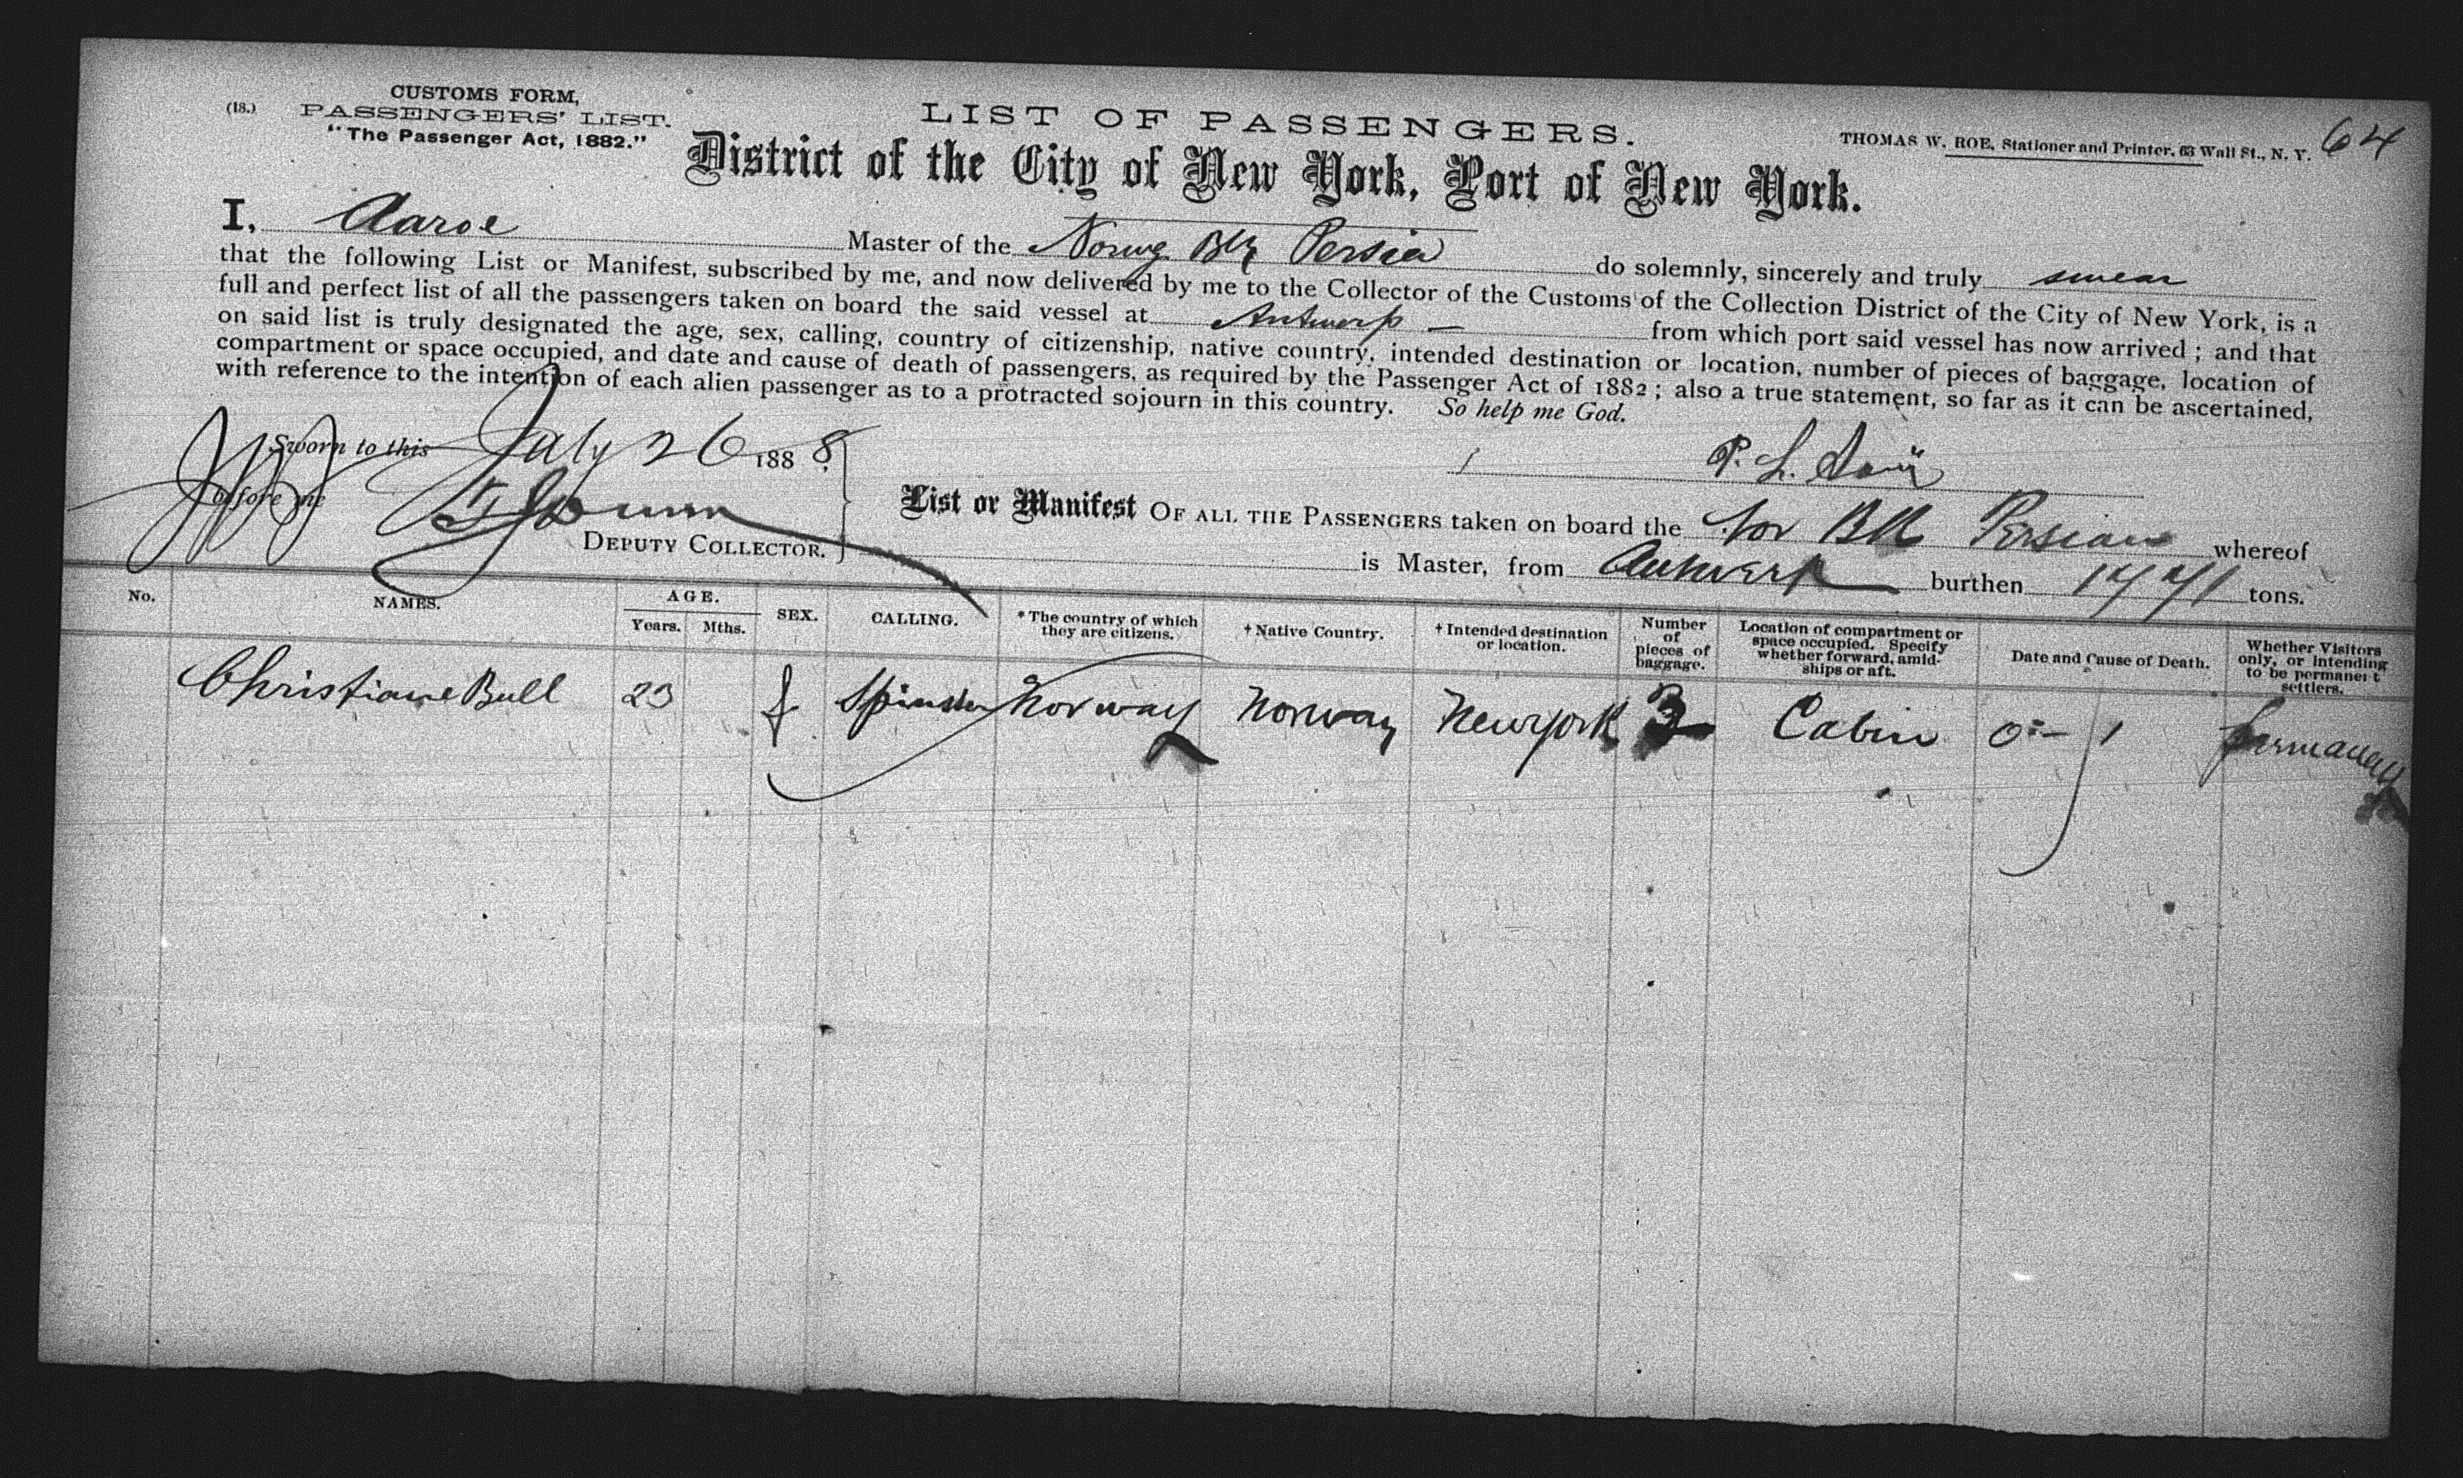 CUSTOMS FORM,
(18.) PASSENGERS' LIST.
"The Passenger Act, 1882."
LIST OF PASSENGERS.
THOMAS W. ROE, Stationer and Printer, 63 Wall St., N. Y. 64
District of the City of New York, Port of New York.
I, Aaroe Master of the Norwg Bk Persia do solemnly, sincerely and truly swear
that the following List or Manifest, subscribed by me, and now delivered by me to the Collector of the Customs of the Collection District of the City of New York, is a
full and perfect list of all the passengers taken on board the said vessel at Antwerp — from which port said vessel has now arrived; and that
on said list is truly designated the age, sex, calling, country of citizenship, native country, intended destination or location, number of pieces of baggage, location of
compartment or space occupied, and date and cause of death of passengers, as required by the Passenger Act of 1882; also a true statement, so far as it can be ascertained,
with reference to the intention of each alien passenger as to a protracted sojourn in this country. So help me God.
Sworn to this July 26 1888
before me
DEPUTY COLLECTOR.
P. L.
List or Manifest OF ALL THE PASSENGERS taken on board the Nor Bk Persian whereof
is Master, from Antwerp burthen tons.
No. NAMES. AGE. Years. Mths. SEX. CALLING. *The country of which they are citizens. †Native Country. †Intended destination or location. Number of pieces of baggage. Location of compartment or space occupied. Specify whether forward, amidships or aft. Date and Cause of Death. Whether Visitors only, or intending to be permanent settlers.
Christiane Bull 23 f Spinster Norway Norway New York Cabin